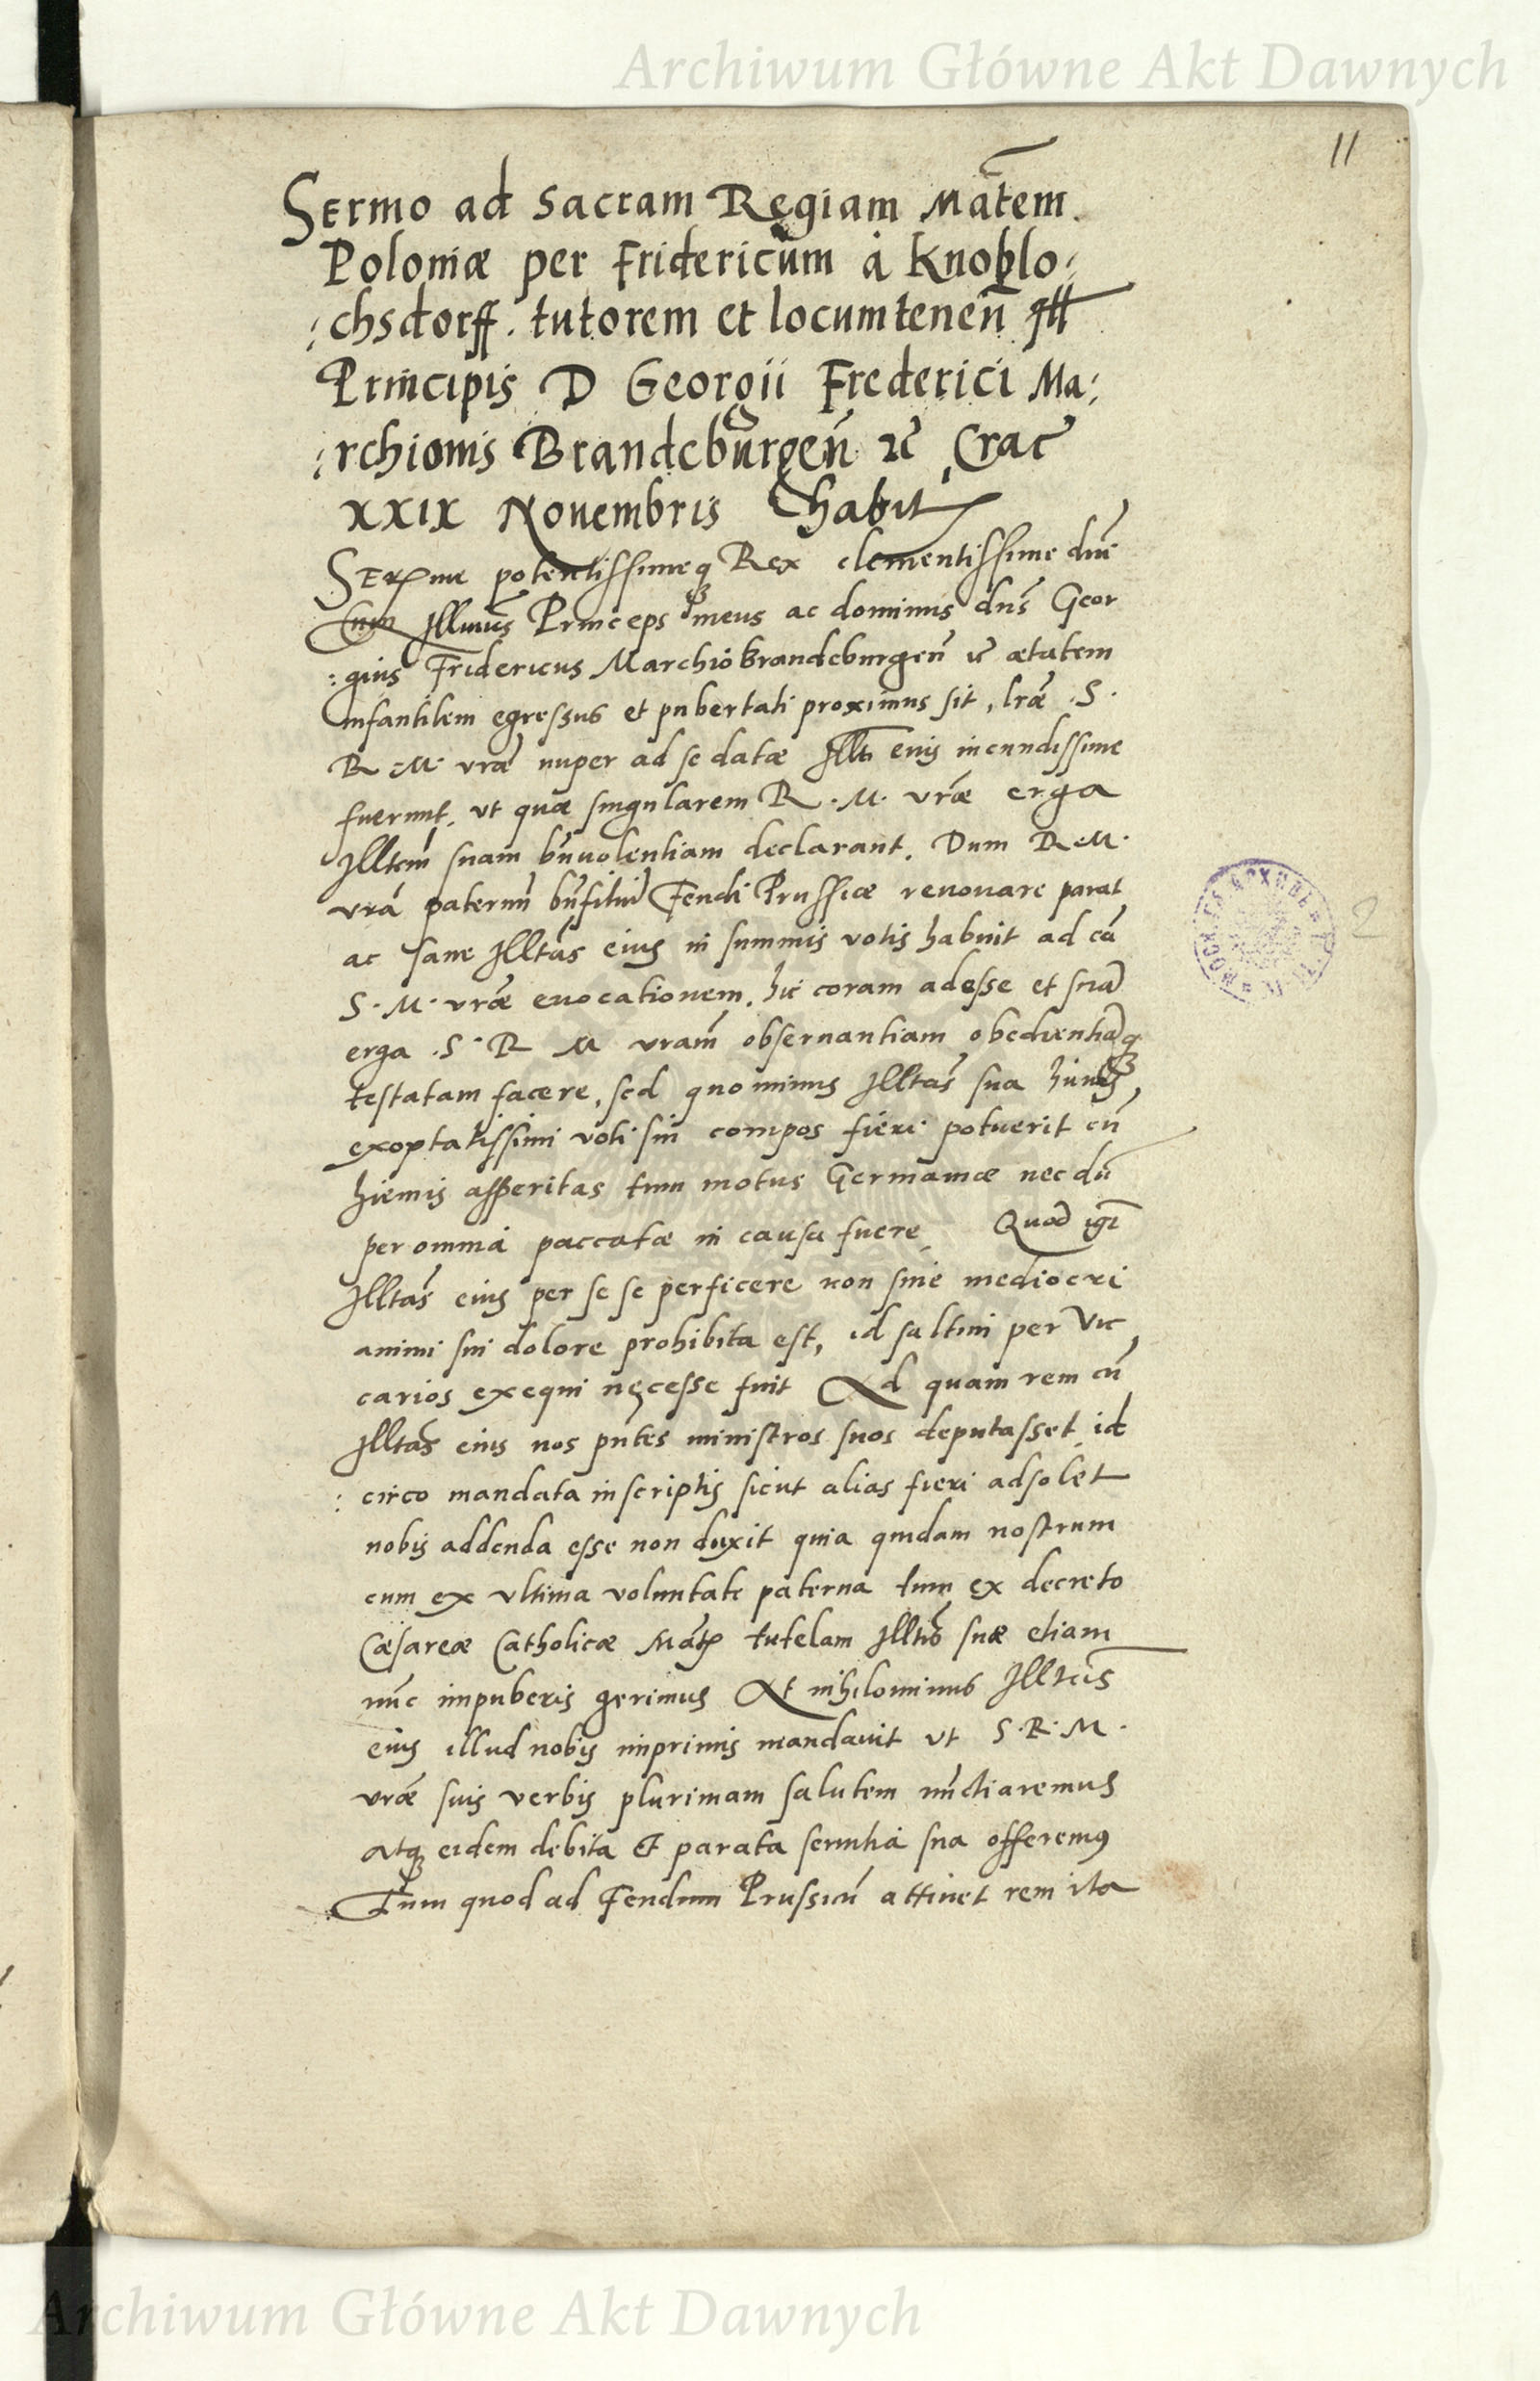 Archiwum Główne Akt Dawnych
11
Sermo ad Sacram Regiam Mãtem
Poloniæ per Fridericum à Knoblo:
:chsdorff. tutorem et locumtenen̄
Principis D Georgii Frederici Ma:
:rchionis Brandeburgen̄ Crac
XXIX Nouembris habit
potentissimeq Rex clementissime
Cum Princeps meus ac dominus dn̄s Geor
:gius Fridericus Marchio Brandeburgen̄ ætatem
infantilem egressus et pubertati proximus sit, lr̄æ S.
R. M. vr̄æ nuper ad se datæ eius iucundissime
fuerunt. vt quæ singularem R. M. vr̄æ erga
Illtem̄ suam declarant. Dum R. M.
vr̄a Feudi Prussiæ renouare parat
ac sane Illtas̄ eius in summis votis habuit ad
S. M. vr̄æ euocationem. hic coram adesse et suā
erga S. R M vram̄ obseruantiam obedientiāq
testatam facere, sed quominus Illtas̄ sua
exoptatissimi voti sui compos fieri potuerit cū
hiemis asperitas tum motus Germaniæ necdū
per omnia paccatæ in causa fuere Quod
Illtas̄ eius per se se perficere non sine mediocri
animi sui dolore prohibita est, id saltim per vic
carios exequi necesse fuit Ad quam rem cū
Illtas̄ eius nos pn̄tes ministros suos deputasset id
: circo mandata in scriptis sicut alias fieri adsolet
nobis addenda esse non duxit quia quidam nostrum
cum ex vltima voluntate paterna tum ex decreto
Cæsareæ Catholicæ tutelam suæ etiam
nūc impuberis gerimus At nihilominus Illtas̄
eius illud nobis imprimis mandauit vt S. R. M.
vr̄æ suis verbis plurimam salutem nūctiaremus
atq eidem debita et parata seruitia sua offeremus
Tum quod ad Feudum Prussicū attinet rem ita
2
Archiwum Główne Akt Dawnych